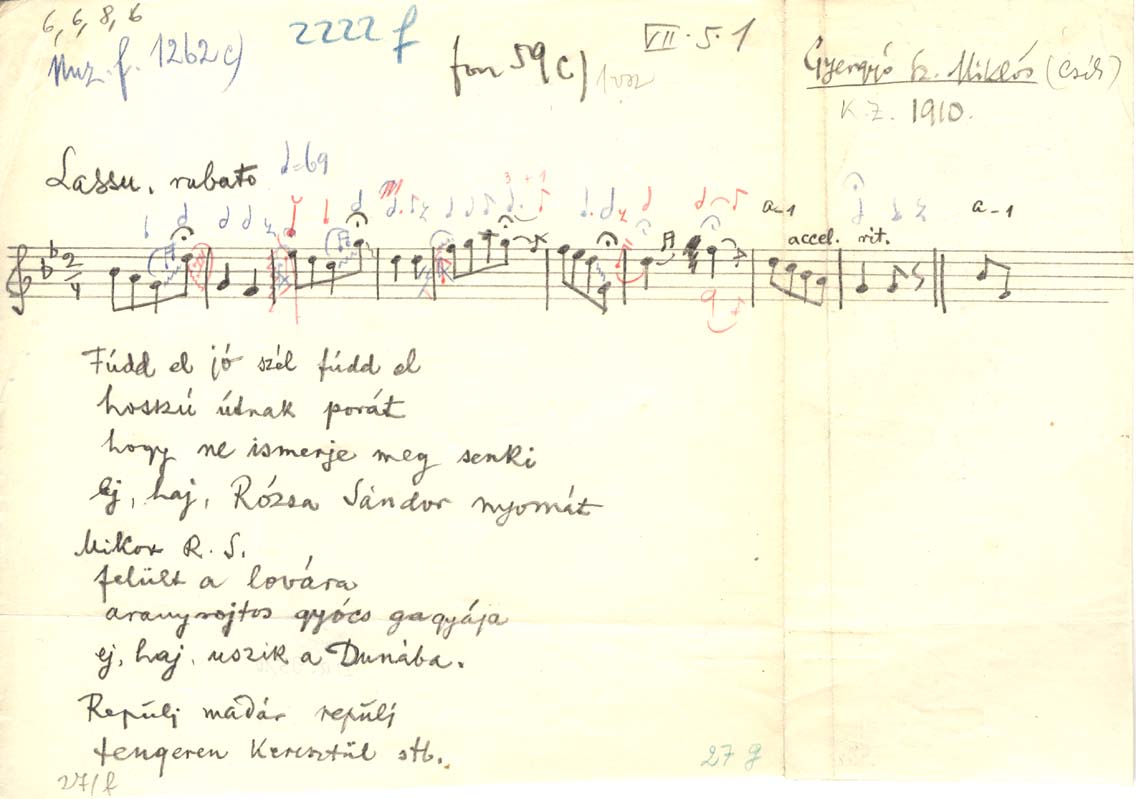 6, 6, 8, 6
2222 f
VII. 5. 1
Muz. f. 1262 c)
fon 59 c)
Gyergyó Sz. Miklós (Csík)
K. Z. 1910.
Lassu, rubato
=69
3 + 1
a-1
accel. rit.
a-1
2
4
Fúdd el jó szél fúdd el
hoszú útnak porát
hogy ne ismerje meg senki
Ej, haj, Rózsa Sándor nyomát
Mikor R. S.
felült a lovára
aranyrojtos gyócs gagyája
ej, haj, uszik a Dunába.
Repülj madár repülj
tengeren Keresztül stb.
27 g
27/f